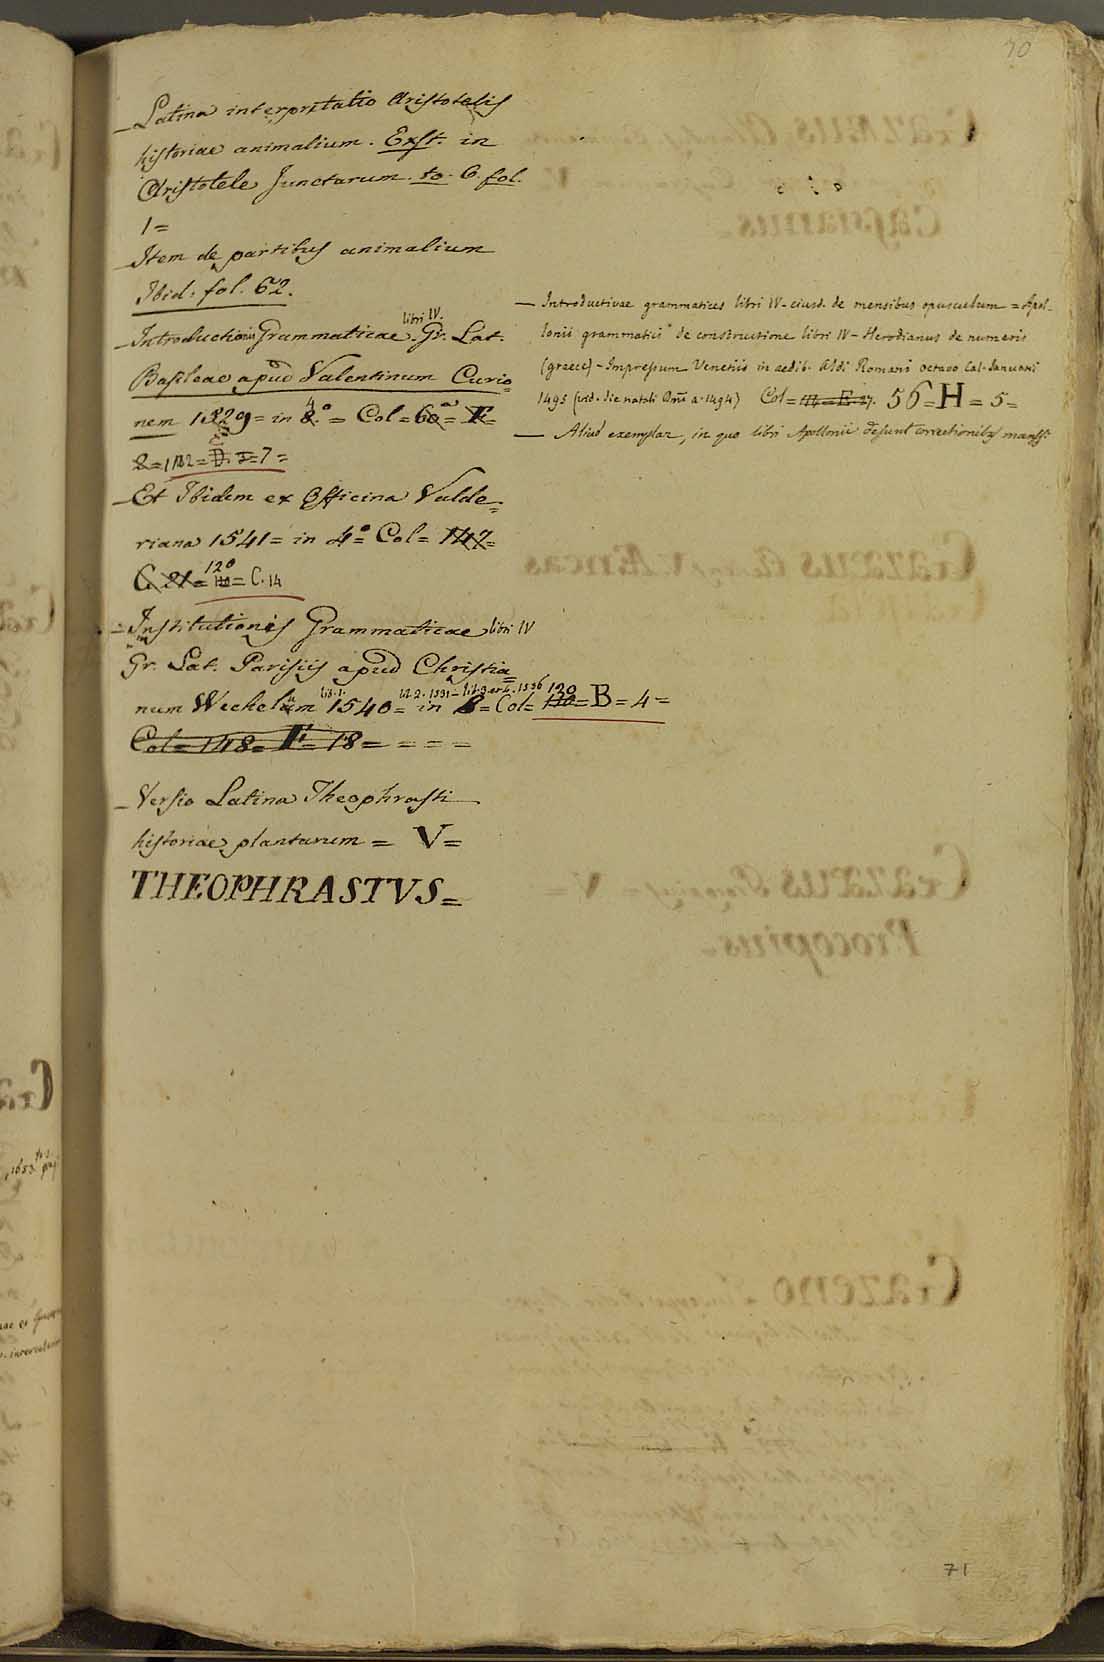 70
_ Latina interpretatio Aristotelis
historiae animalium. Exst. in
Aristotele Junctarum. to. 6. fol.
1 =
_ Item de partibus animalium
Ibid: fol. 62.
_ Introductionis Grammaticae libri IV. Gr. Lat.
Basileae apud Valentinum Curio=
nem 1529 = in 4.° = Col =
= 7 =
_ Et Ibidem ex Officina Valde=
riana 1541 = in 4.° Col = 147 =
C. 21 = 120 = C. 14
_ Institutionis Grammaticae libri IV
Gr. Lat. Parisiis apud Christia=
num Wechelum lib. 1. 1540 = in 8 = Col = 120 = B = 4 =
Col = 148 = F = 18 = = = =
_ Versio Latina Theophrasti
historiae plantarum = V =
THEOPHRASTVS =
— Introductivae grammatices libri IV - eiusd. de mensibus opusculum = Apol-
lonii grammatici de constructione libri IV - Herodianus de numeris
(graece) - Impressum Venetiis in aedib. Aldi Romani octavo Cal. Januarii
1495 (vid. die natali Dni a. 1494) Col = 56 = H = 5 =
— Aliud exemplar, in quo libri Apollonii desunt correctionibus manss.
71